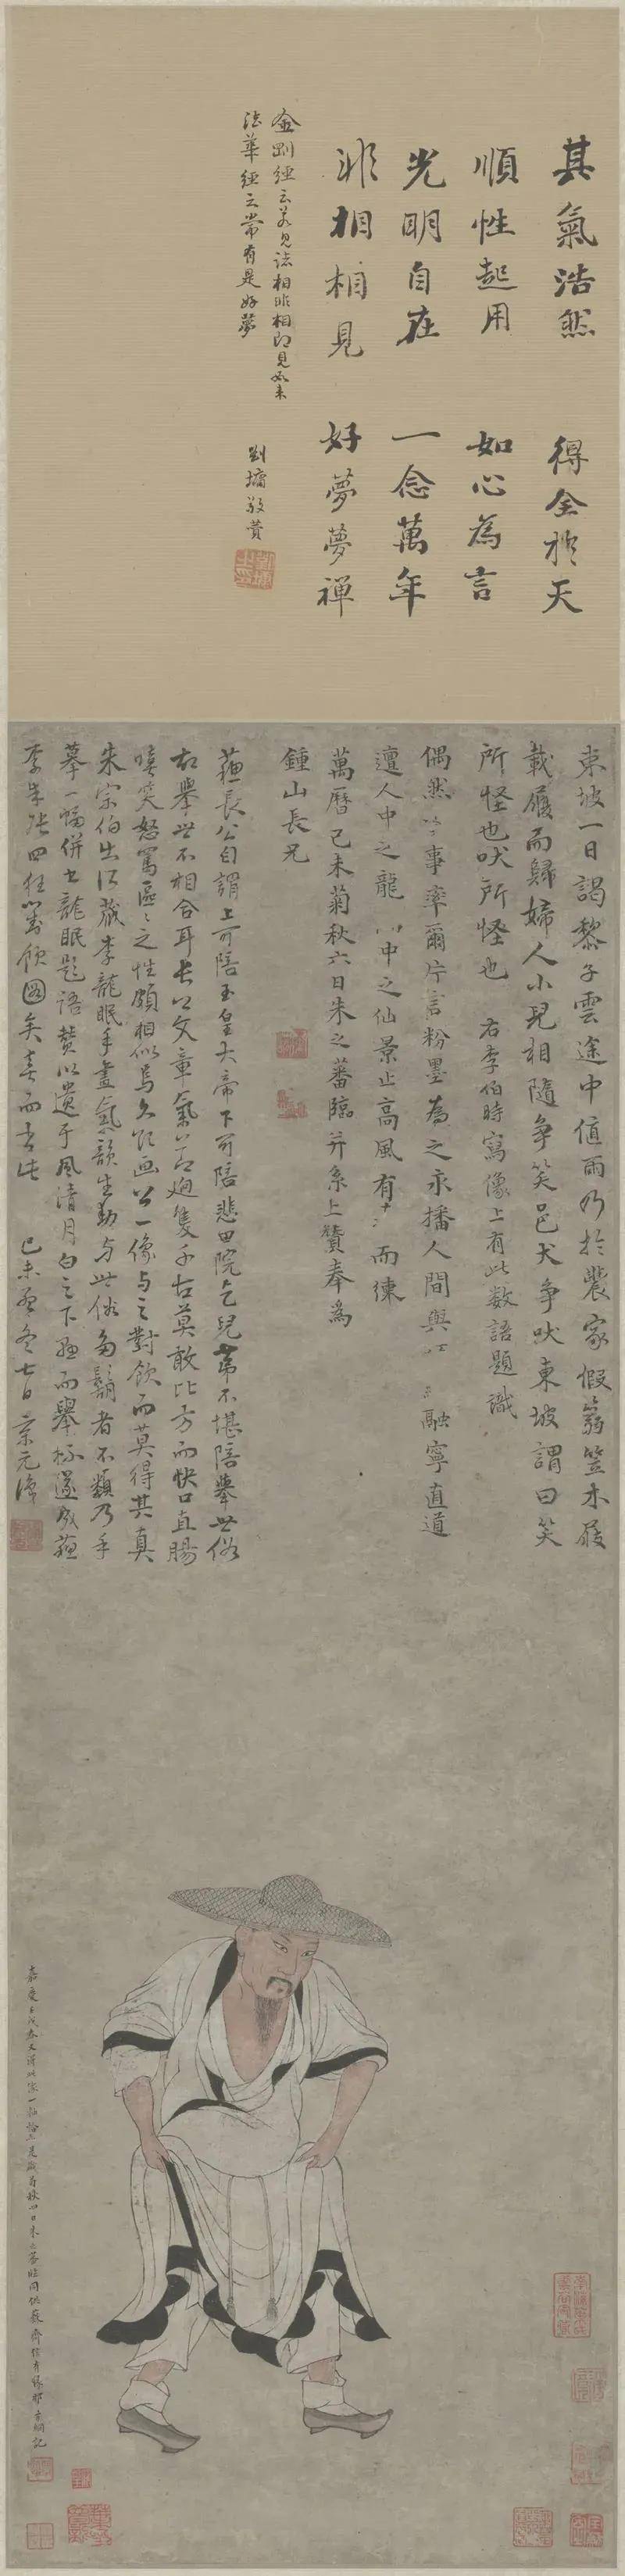 其氣浩然 得全於天
順性起用 如心為言
光明自在 一念萬年
非相相見 好夢夢禪
金剛經云若見諸相非相即見如来
法華經云常有是好夢
劉墉敬贊
東坡一日謁黎子雲途中值雨乃於農家假蒻笠木屐
載履而歸婦人小兒相隨爭笑邑犬爭吠東坡謂曰笑
所怪也吠所怪也 右李伯時寫像上有此数語題識
偶然 事率爾片言粉墨為之永播人間與 融寧直道
邅人中之龍 中之仙景止高風有 而陳
萬曆己未菊秋六日朱之蕃臨并系上贊奉為
鍾山長兄
蘓長公自謂上可陪玉皇大帝下可陪悲田院乞兒第不堪陪舉世俗
故舉世不相合耳長公文章氣節迥隻千古莫敢比方而快口直腸
嘻笑怒罵區區之性頗相似焉久欲画公一像与之對飲而莫得其真
朱宗伯出所藏李龍眠手畫氣韻生動与世俗多鬍者不類乃手
摹一幅併書龍眠題語贊以遺于風清月白之下 而舉杯遂成蘓
李朱張四狂 圖矣喜而書此 己未 冬七日 元
嘉慶 戌春又得此像一軸 是歲 秋四日朱之蕃臨同供蘇齋 方綱記